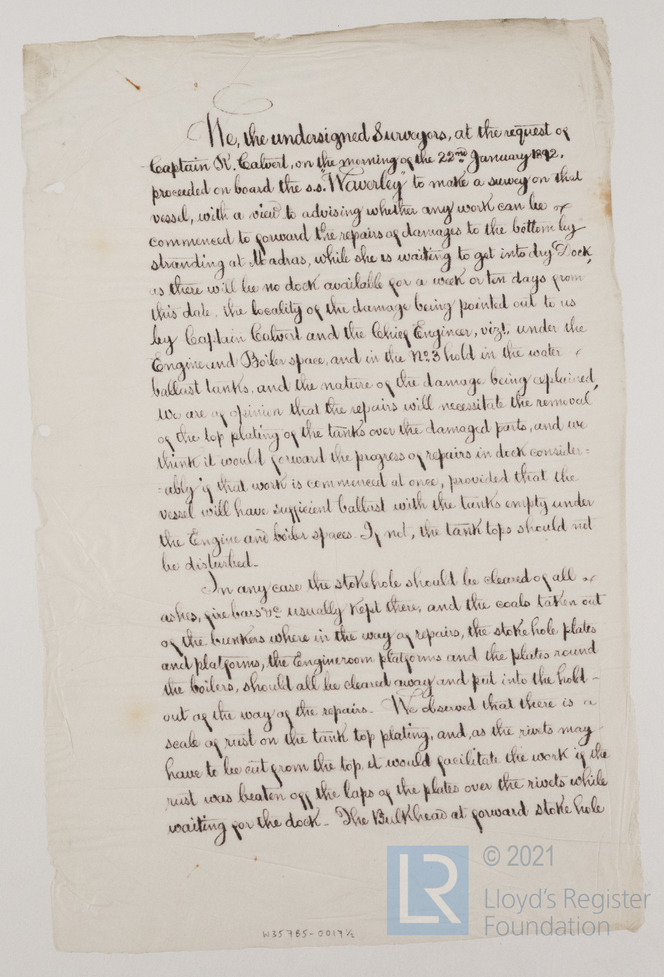 We, the undersigned Surveyors, at the request of
Captain R. Calvert, on the morning of the 22nd January 1892,
proceeded on board the s.s. "Waverley" to make a survey on that
vessel, with a view to advising whether any work can be
commenced to forward the repairs of damages to the bottom by
stranding at Madras, while she is waiting to get into dry Dock,
as there will be no dock available for a week or ten days from
this date, the locality of the damage being pointed out to us
by Captain Calvert and the Chief Engineer, vizt, under the
Engine and Boiler space, and in the No 3 hold in the water
ballast tanks, and the nature of the damage being explained,
we are of opinion that the repairs will necessitate the removal
of the top plating of the tanks over the damaged parts, and we
think it would forward the progress of repairs in dock consider=
=ably if that work is commenced at once, provided that the
vessel will have sufficient ballast with the tanks empty under
the Engine and boiler spaces. If not, the tank tops should not
be disturbed.
In any case the stokehole should be cleared of all
ashes, fire bars &c usually kept there, and the coals taken out
of the bunkers where in the way of repairs, the stokehole plates
and platforms, the Engineroom platforms and the plates round
the boilers, should all be cleared away and put into the hold
out of the way of the repairs. We observed that there is a
scale of rust on the tank top plating, and, as the rivets may
have to be cut from the top, it would facilitate the work if the
rust was beaten off the laps of the plates over the rivets while
waiting for the dock. The Bulkhead at forward stoke hole
LR
© 2021
Lloyd's Register
Foundation
W35785-0017½